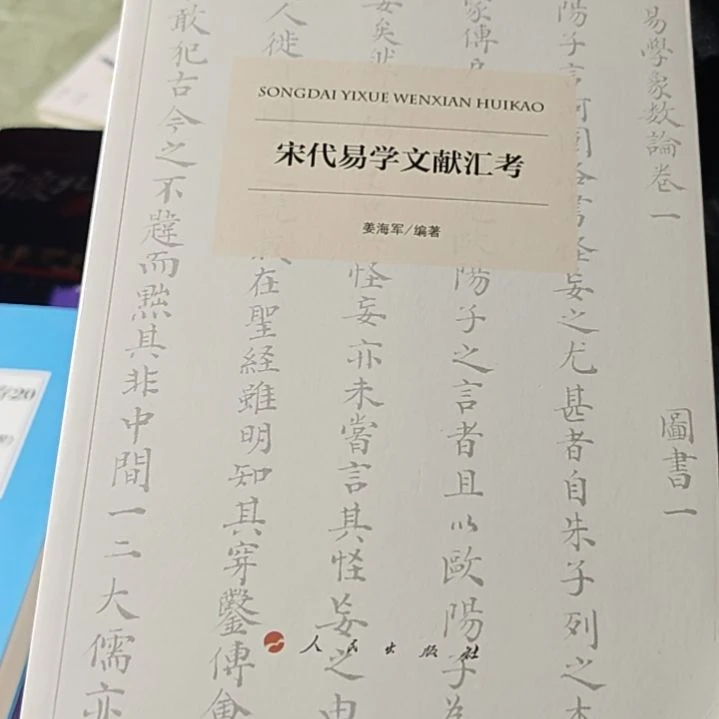 SONGDAI YIXUE WENXIAN HUIKAO
宋代易学文献汇考
姜海军/编著
易學象數論卷一
圖書一
陽子言河圖
怪妄之尤甚者自朱子列之本
歐陽子之言者且以歐陽子為
怪妄亦未嘗言其怪妄之由
在聖経雖明知其穿鑿傅會
敢犯古今之不韙而黜其非中間一二大儒亦
人民出版社
20